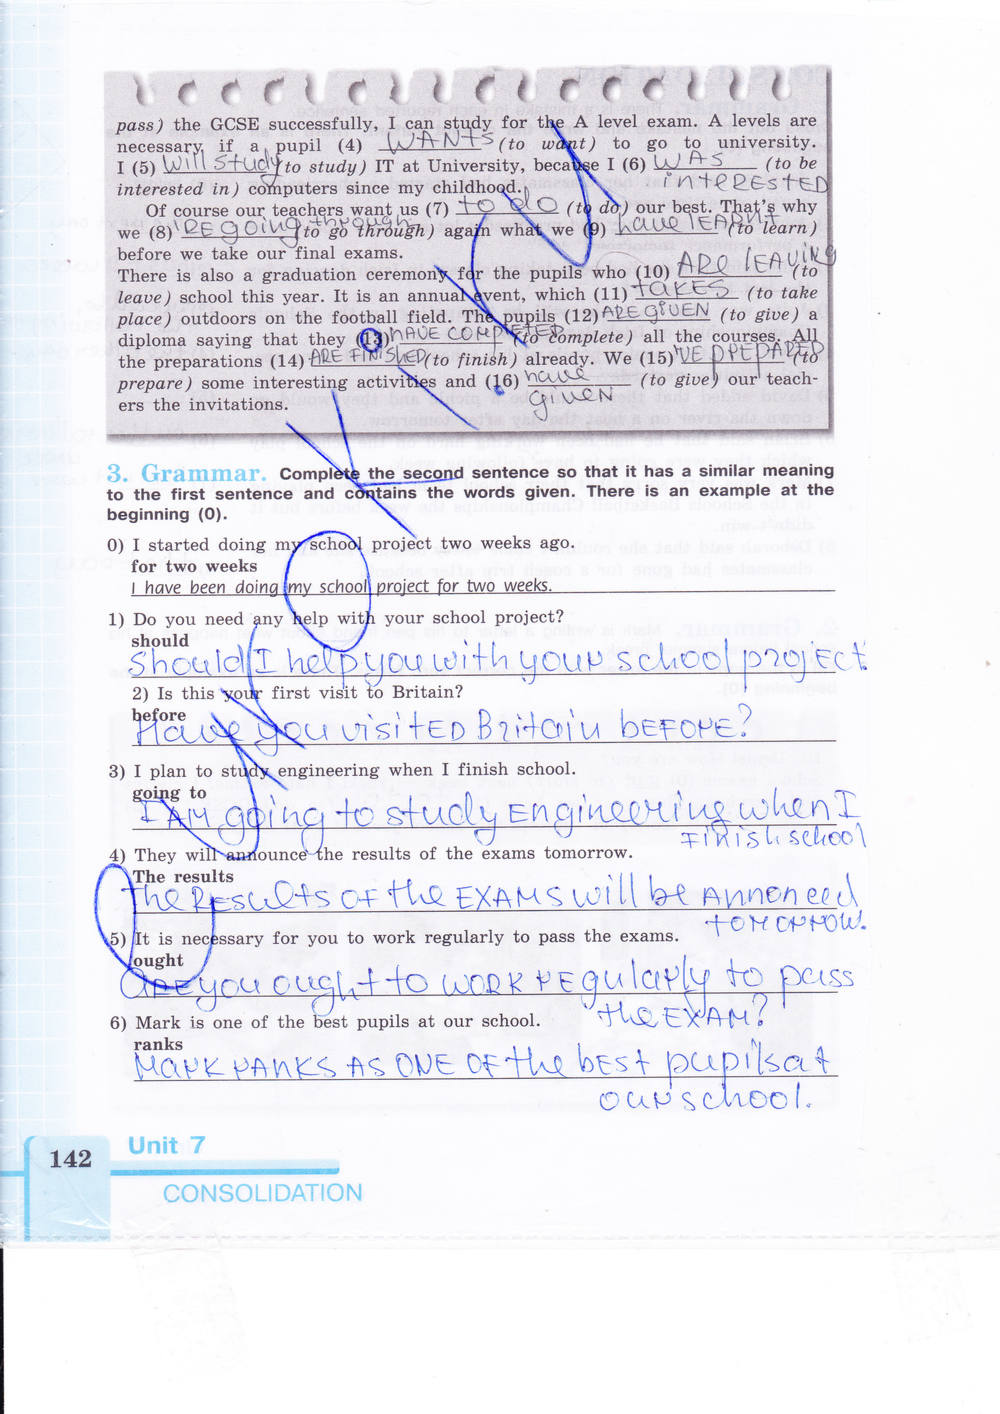 pass) the GCSE successfully, I can study for the A level exam. A levels are
necessary if a pupil (4) WANTS (to want) to go to university.
I (5) will study (to study) IT at University, because I (6) WAS (to be
interested in) computers since my childhood. INTERESTED
Of course our teachers want us (7) to do (to do) our best. That's why
we (8) 'RE going through (to go through) again what we (9) have LEARNT (to learn)
before we take our final exams.
There is also a graduation ceremony for the pupils who (10) ARE lEAVING (to
leave) school this year. It is an annual event, which (11) tAKES (to take
place) outdoors on the football field. The pupils (12) ARE GIVEN (to give) a
diploma saying that they (13) HAVE COMPLETED (to complete) all the courses. All
the preparations (14) ARE FINISHED (to finish) already. We (15) 'VE PREPARED (to
prepare) some interesting activities and (16) have (to give) our teach-
ers the invitations. given
3. Grammar. Complete the second sentence so that it has a similar meaning
to the first sentence and contains the words given. There is an example at the
beginning (0).
0) I started doing my school project two weeks ago.
for two weeks
I have been doing my school project for two weeks.
1) Do you need any help with your school project?
should
Should I help you with your school project
2) Is this your first visit to Britain?
before
Have you visitED Britain BEFORE?
3) I plan to study engineering when I finish school.
going to
I AM going to study Engineering when I
FINISH school
4) They will announce the results of the exams tomorrow.
The results
The RESults OF the EXAMS will be Annonced
TOMORROW.
5) It is necessary for you to work regularly to pass the exams.
ought
ARE you ought to WORK REgulaRly to pass
the EXAM?
6) Mark is one of the best pupils at our school.
ranks
MARK RANKS AS ONE OF the bEST pupils at
OUR school.
142
Unit 7
CONSOLIDATION